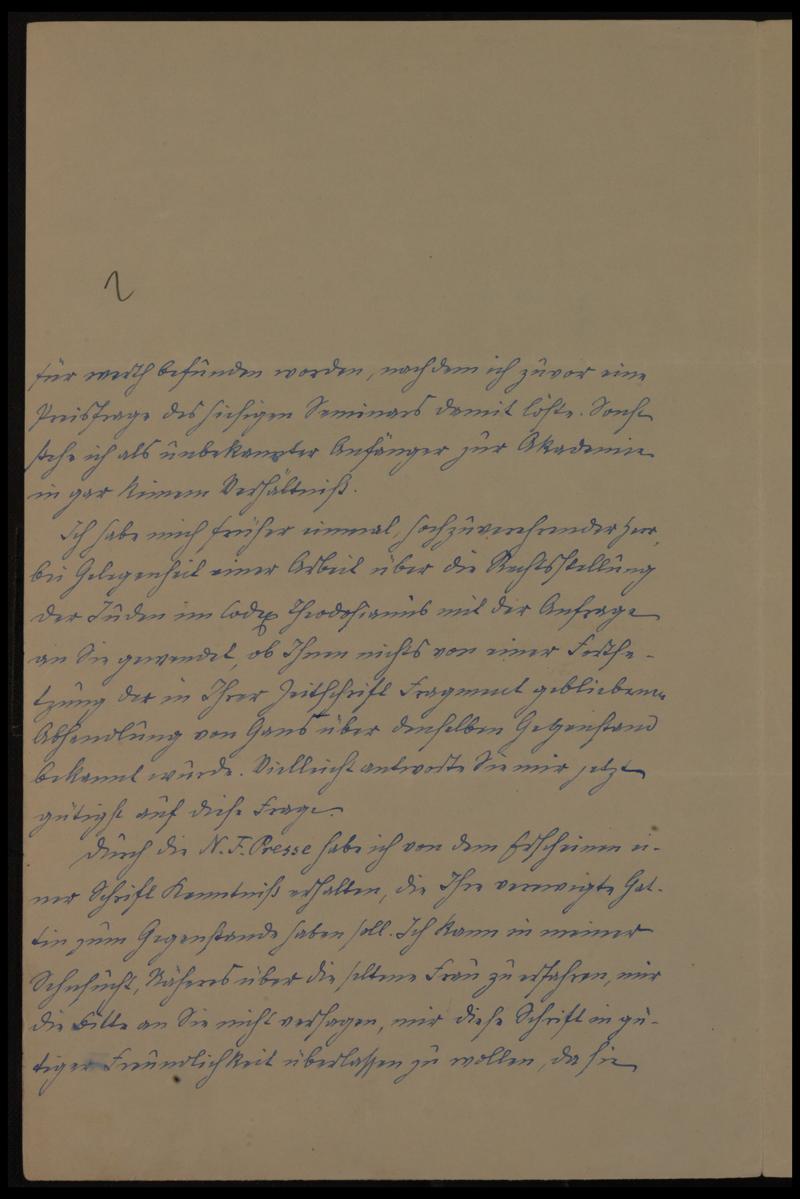 2
für werth befunden worden, nachdem ich zuvor eine
Preisfrage des hiesigen Seminars damit löste. Sonst
stehe ich als unbekannter Anfänger zur Akademie
in gar keinem Verhältniß.
Ich habe mich früher einmal, hochzuverehrender Herr,
bei Gelegenheit einer Arbeit über die Rechtsstellung
der Juden im Codex Theodosianus mit der Anfrage
an Sie gewendet, ob Ihnen nichts von einer Fortse-
tzung der in Ihrer Zeitschrift Fragment gebliebenen
Abhandlung von Gans über denselben Gegenstand
bekannt wurde. Vielleicht antworten Sie mir jetzt
gütigst auf diese Frage.
Durch die N. F. Presse habe ich von dem Erscheinen ei-
ner Schrift Kenntniß erhalten, die Ihre verewigte Gat-
tin zum Gegenstande haben soll. Ich kann in meiner
Sehnsucht, Näheres über die seltene Frau zu erfahren, mir
die Bitte an Sie nicht versagen, mir diese Schrift in gü-
tiger Freundlichkeit überlassen zu wollen, da sie